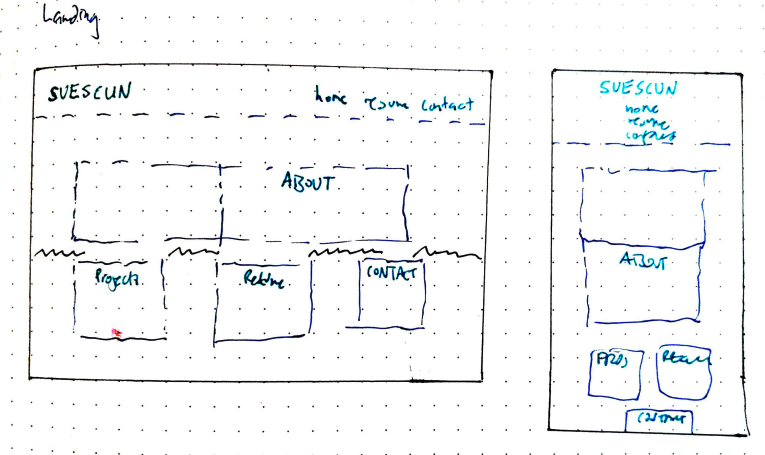 Landing
SUESCUN
home resume contact
ABOUT
Projects
Resume
CONTACT
SUESCUN
home
resume
contact
ABOUT
PROJ
Resume
CONTACT